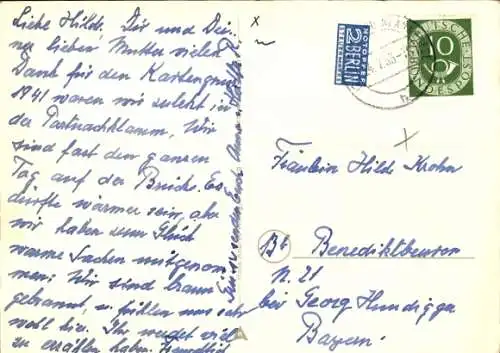 Liebe Hilde, Dir und Dei-
ner lieben Mutter vielen
Dank für den Kartengruß
1941 waren wir zuletzt in
der Partnachklamm, Wir
sind fast den ganzen
Tag auf der Es
dürfte wärmer sein, aber
wir haben zum Glück
warme Sachen mitgenom
men; Wir sind braun
gebrannt, u. fühlen uns sehr
wohl hier. Ihr werdet viel
zu erzählen haben. Herzlich
x
NOTOPFER
2 BERLIN
STEUERMARKE
DEUTSCHE
10
BUNDESPOST
Fräulein Hilde Krohn
Benediktbeuern
N. 21
bei Georg Hundigger
Bayern.